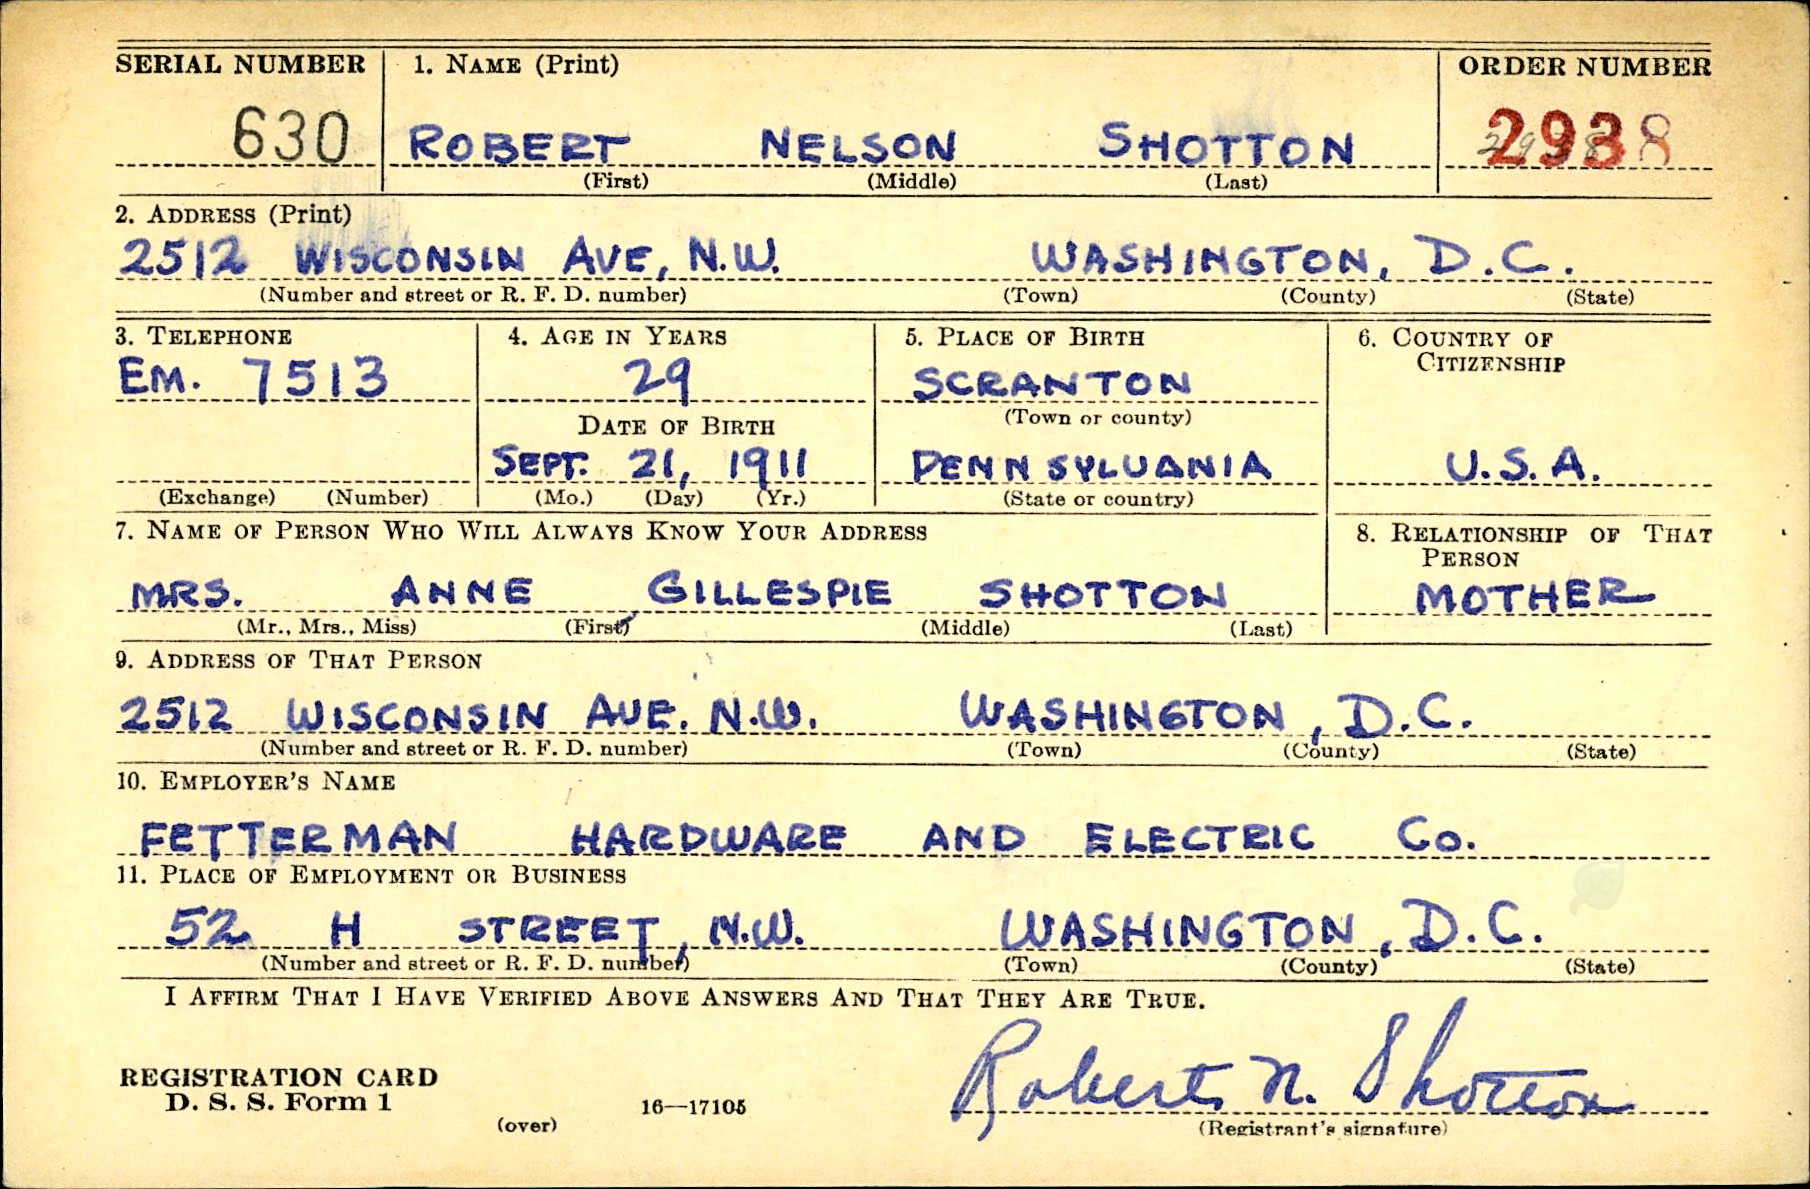 SERIAL NUMBER 1. NAME (Print) ORDER NUMBER
630 ROBERT NELSON SHOTTON
(First) (Middle) (Last)
2. ADDRESS (Print)
2512 WISCONSIN AVE, N.W. WASHINGTON, D.C.
(Number and street or R. F. D. number) (Town) (County) (State)
3. TELEPHONE 4. AGE IN YEARS 5. PLACE OF BIRTH 6. COUNTRY OF
CITIZENSHIP
EM. 7513 29 SCRANTON
(Town or county)
DATE OF BIRTH
SEPT. 21, 1911 PENNSYLVANIA U.S.A.
(Exchange) (Number) (Mo.) (Day) (Yr.) (State or country)
7. NAME OF PERSON WHO WILL ALWAYS KNOW YOUR ADDRESS 8. RELATIONSHIP OF THAT
PERSON
MRS. ANNE GILLESPIE SHOTTON MOTHER
(Mr., Mrs., Miss) (First) (Middle) (Last)
9. ADDRESS OF THAT PERSON
2512 WISCONSIN AVE. N.W. WASHINGTON, D.C.
(Number and street or R. F. D. number) (Town) (County) (State)
10. EMPLOYER'S NAME
FETTERMAN HARDWARE AND ELECTRIC Co.
11. PLACE OF EMPLOYMENT OR BUSINESS
52 H STREET, N.W. WASHINGTON, D.C.
(Number and street or R. F. D. number) (Town) (County) (State)
I AFFIRM THAT I HAVE VERIFIED ABOVE ANSWERS AND THAT THEY ARE TRUE.
REGISTRATION CARD
D. S. S. Form 1 16—17105 Robert N. Shotton
(over) (Registrant's signature)